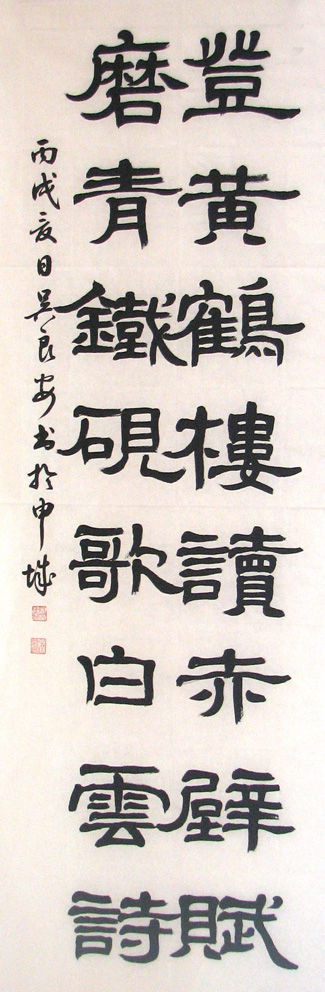 登黄鶴樓讀赤壁賦
磨青鐵硯歌白雲詩
丙戌夏日吴良安书於申城